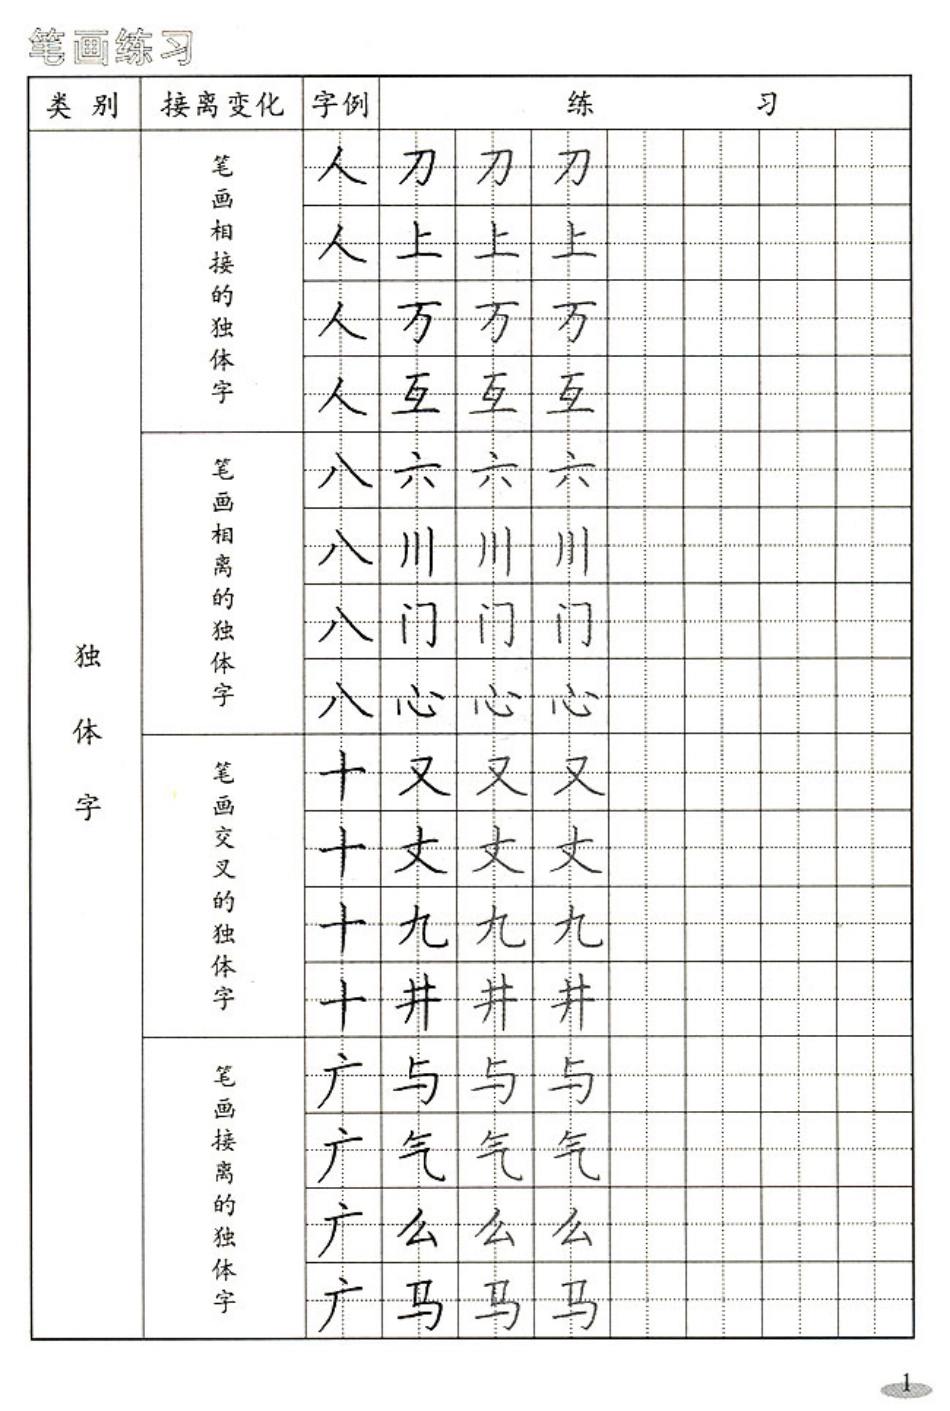 笔画练习
类别 接离变化 字例 练习
独体字
笔画相接的独体字
人 刀 刀 刀
人 上 上 上
人 万 万 万
人 互 互 互
笔画相离的独体字
八 六 六 六
八 川 川 川
八 门 门 门
八 心 心 心
笔画交叉的独体字
十 又 又 又
十 丈 丈 丈
十 九 九 九
十 井 井 井
笔画接离的独体字
广 与 与 与
广 气 气 气
广 么 么 么
广 马 马 马
1